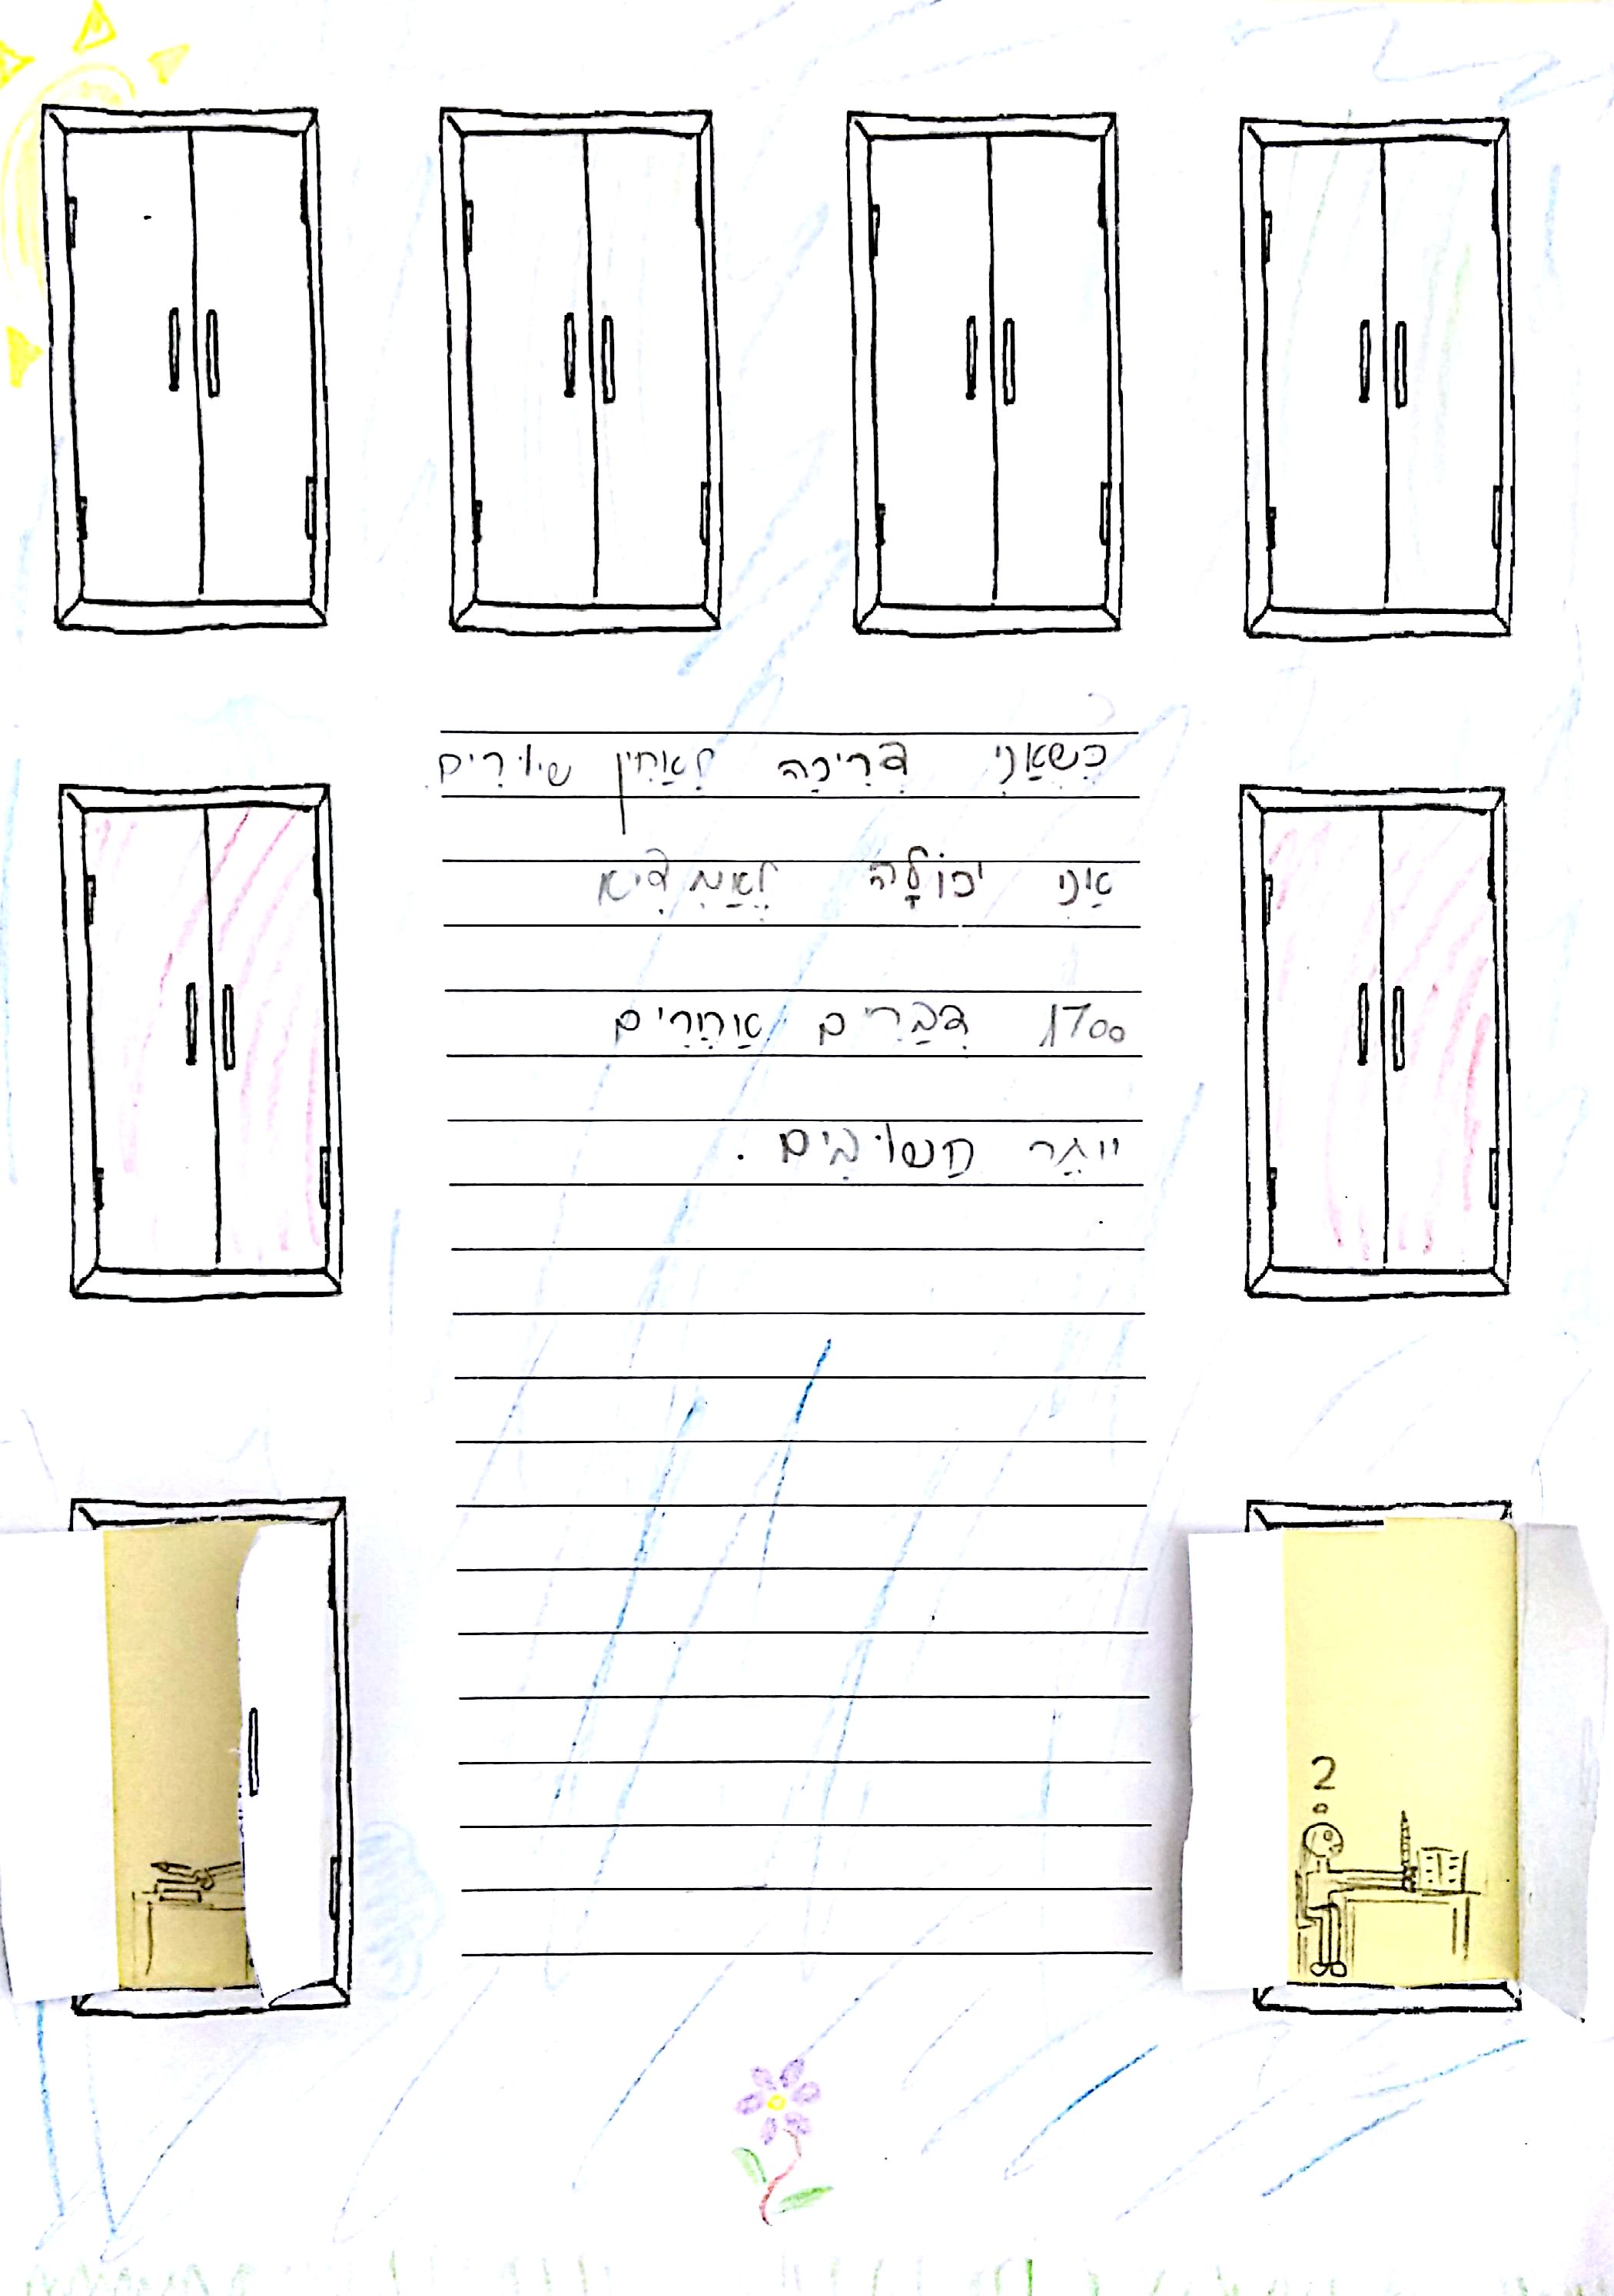 כִּשְאַנִי צְרִיכָה לְאַחִין שיורִים
אַנִי יכוֹלָה לְאַמְצִיא
1700 דְבָרִים אַחֵרִים
יותַר חַשוּבִים .
2